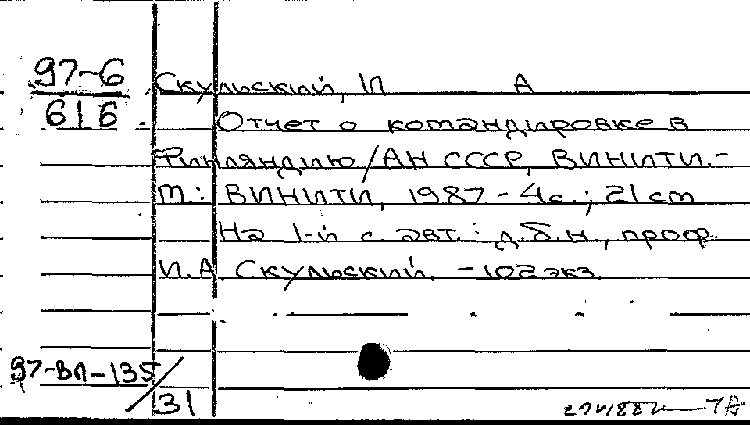 97-6
616
Скульский, И А
Отчет о командировке в
Финляндию / АН СССР, ВИНИТИ.-
М.: ВИНИТИ, 1987 - 4с.; 21 cm
На 1-й с. авт.: д.б.н, проф
И.А. Скульский. - 102 экз.
97-ВЛ-135/
31